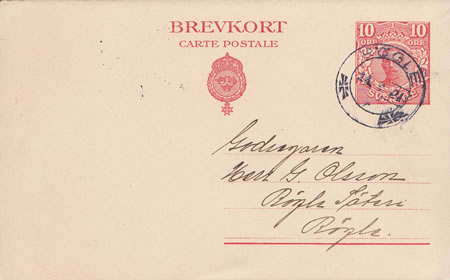 BREVKORT
CARTE POSTALE
10 10
ÖRE ÖRE
RÖGLE
Godsegaren
Herr G. Olsson
Rögle Säteri
Rögle.